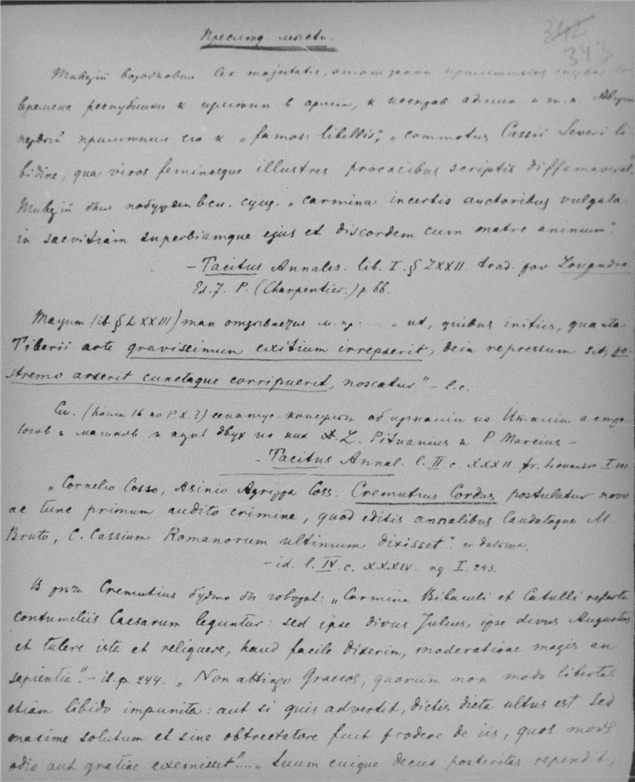 342
343
Преслѣд. мысли.
Тиверій возобновилъ lex majestatis, этотъ законъ примѣнялся
времена республики къ измѣнѣ въ арміи, къ админ. и т. д. Августъ
первый примѣнилъ его къ „famosis libellis", „commotus Cassii Severi li-
bidine, qua viros feminasque illustres procacibus scriptis diffamaverat".
Тиверій былъ „carmina incertis auctoribus vulgata
in saevitiam superbiamque ejus et discordem cum matre animum".
– Tacitus Annales. lib. I. § LXXII. trad. par Louandre
Ed. 7. P. (Charpentier.) p. 66.
(ib. § LXXIII) „ut, quibus initiis, quanta
Tiberii arte gravissimum exitium irrepserit, dein repressum sit, po-
stremo arserit cunctaque corripuerit, noscatur" – l. c.
См. (посл. 16 по Р. Х.) сенатус-консультъ объ изгнаніи изъ Италіи астро-
логовъ и магиковъ и двухъ изъ нихъ L. Pituanius и P. Marcius –
– Tacitus Annal. l. II c. XXXII tr. Louandr. I
„Cornelio Cosso, Asinio Agrippa Coss. Cremutius Cordus postulatur novo
ac tunc primum audito crimine, quod editis annalibus laudatoque M.
Bruto, C. Cassium Romanorum ultimum dixisset".
– id. l. IV. c. XXXIV. I. 243.
Cremutius будто бы говорилъ: „Carmina Bibaculi et Catulli referta
contumeliis Caesarum leguntur: sed ipse divus Julius, ipse divus Augustus
et tulere ista et reliquere, haud facile dixerim, moderatione magis an
sapientia". – id. p. 244. „Non attingo Graecos, quorum non modo libertas
etiam libido impunita: aut si quis advertit, dictis dicta ultus est Sed
maxime solutum et sine obtrectatore fuit prodere de iis, quos mors
odio aut gratiae exemisset".... „Suum cuique decus posteritas rependit;